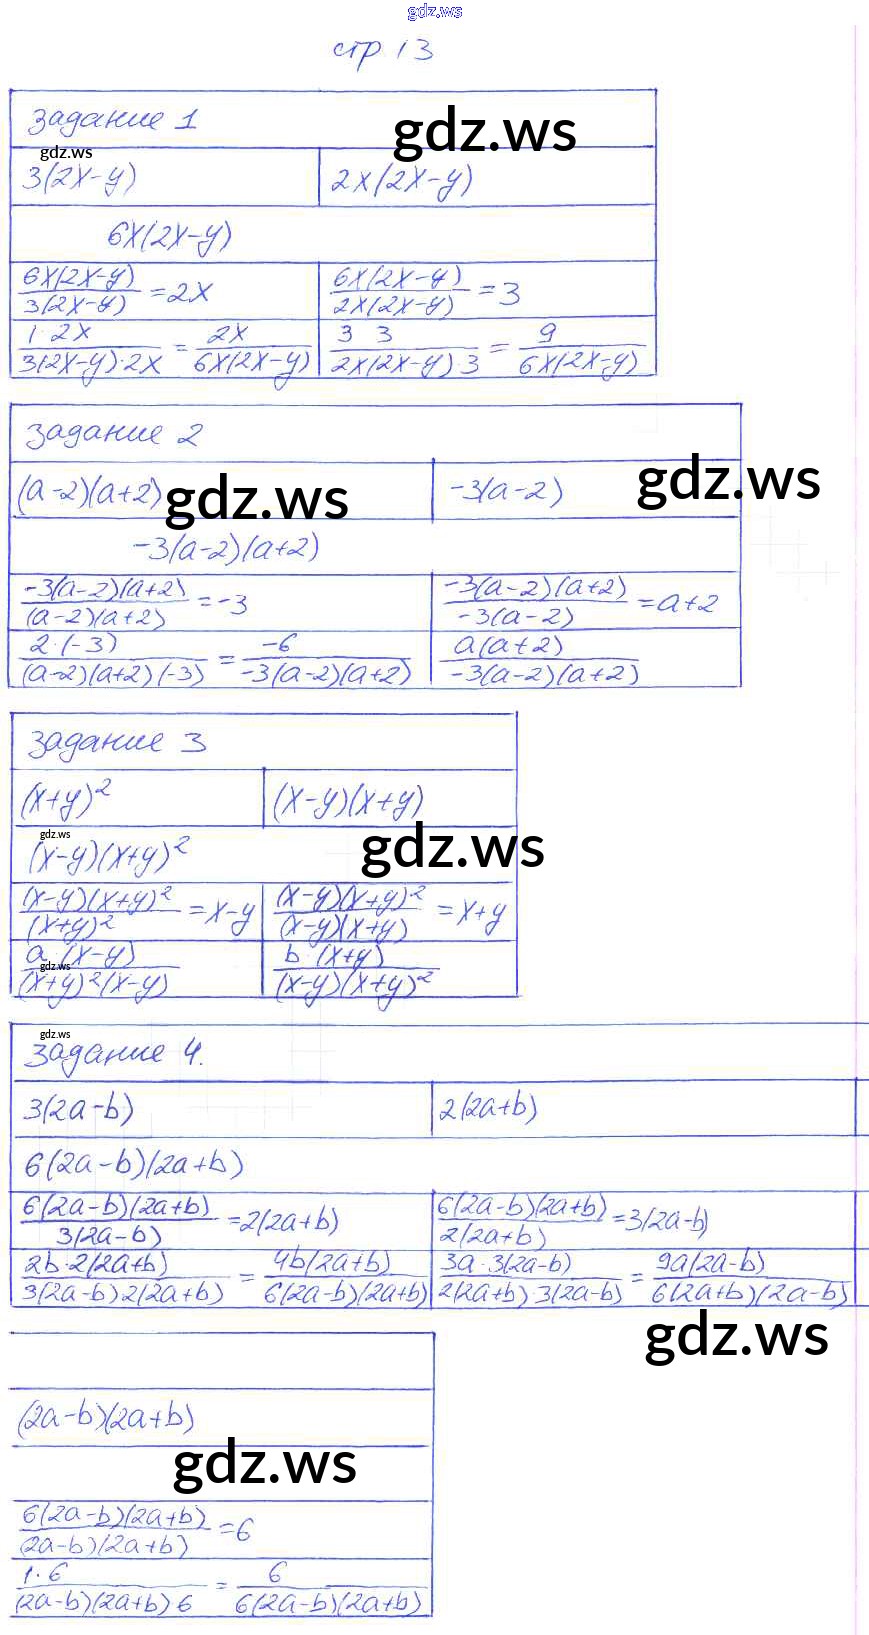 gdz.ws
стр 13
задание 1
gdz.ws
gdz.ws
3(2x-y) 2x(2x-y)
6x(2x-y)
6x(2x-y)/3(2x-y) = 2x 6x(2x-y)/2x(2x-y) = 3
1·2x/3(2x-y)·2x = 2x/6x(2x-y) 3 3/2x(2x-y)·3 = 9/6x(2x-y)
задание 2
gdz.ws
(a-2)(a+2) -3(a-2)
gdz.ws
-3(a-2)(a+2)
-3(a-2)(a+2)/(a-2)(a+2) = -3 -3(a-2)(a+2)/-3(a-2) = a+2
2·(-3)/(a-2)(a+2)(-3) = -6/-3(a-2)(a+2) a(a+2)/-3(a-2)(a+2)
задание 3
(x+y)² (x-y)(x+y)
gdz.ws
gdz.ws
(x-y)(x+y)²
(x-y)(x+y)²/(x+y)² = x-y (x-y)(x+y)²/(x-y)(x+y) = x+y
a·(x-y)/(x+y)²(x-y) b·(x+y)/(x-y)(x+y)²
gdz.ws
gdz.ws
задание 4.
3(2a-b) 2(2a+b)
6(2a-b)(2a+b)
6(2a-b)(2a+b)/3(2a-b) = 2(2a+b) 6(2a-b)(2a+b)/2(2a+b) = 3(2a-b)
2b·2(2a+b)/3(2a-b)2(2a+b) = 4b(2a+b)/6(2a-b)(2a+b) 3a·3(2a-b)/2(2a+b)·3(2a-b) = 9a(2a-b)/6(2a+b)(2a-b)
gdz.ws
(2a-b)(2a+b)
gdz.ws
6(2a-b)(2a+b)/(2a-b)(2a+b) = 6
1·6/(2a-b)(2a+b)6 = 6/6(2a-b)(2a+b)